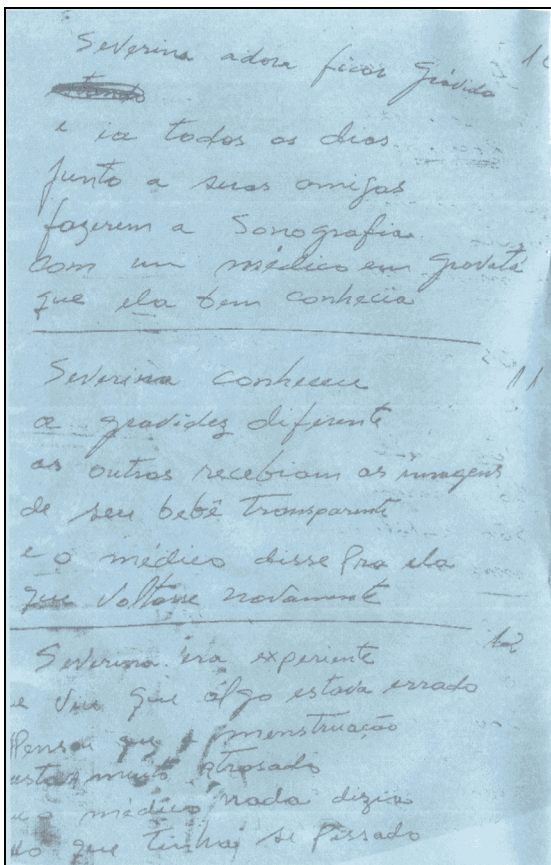 Severina adora ficar grávida
e ia todos os dias
junto a suas amigas
fazerem a Sonografia
com um médico em Gravatá
que ela bem conhecia
Severina conheceu 11
a gravidez diferente
as outras recebiam as imagens
de seu bebê transparente
e o médico disse pra ela
que voltasse novamente
Severina era experiente 12
e viu que algo estava errado
Pensou que a menstruação
estava muito atrasado
e o médico nada dizia
do que tinha se passado